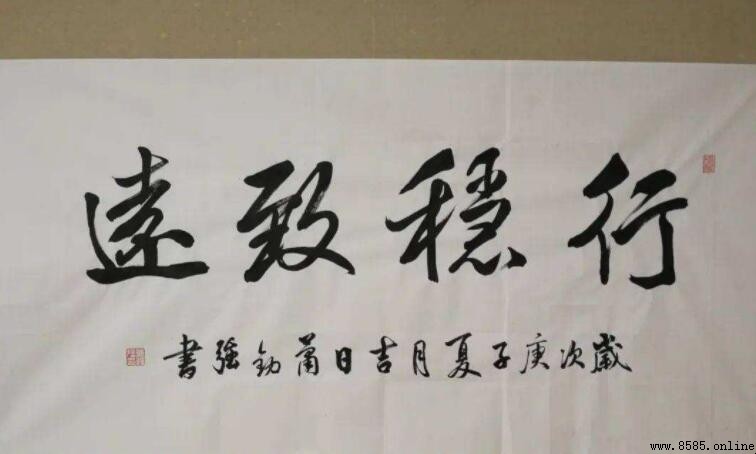 行穩致遠
歲次庚子夏月吉日蕭劍強書
www.8585.online